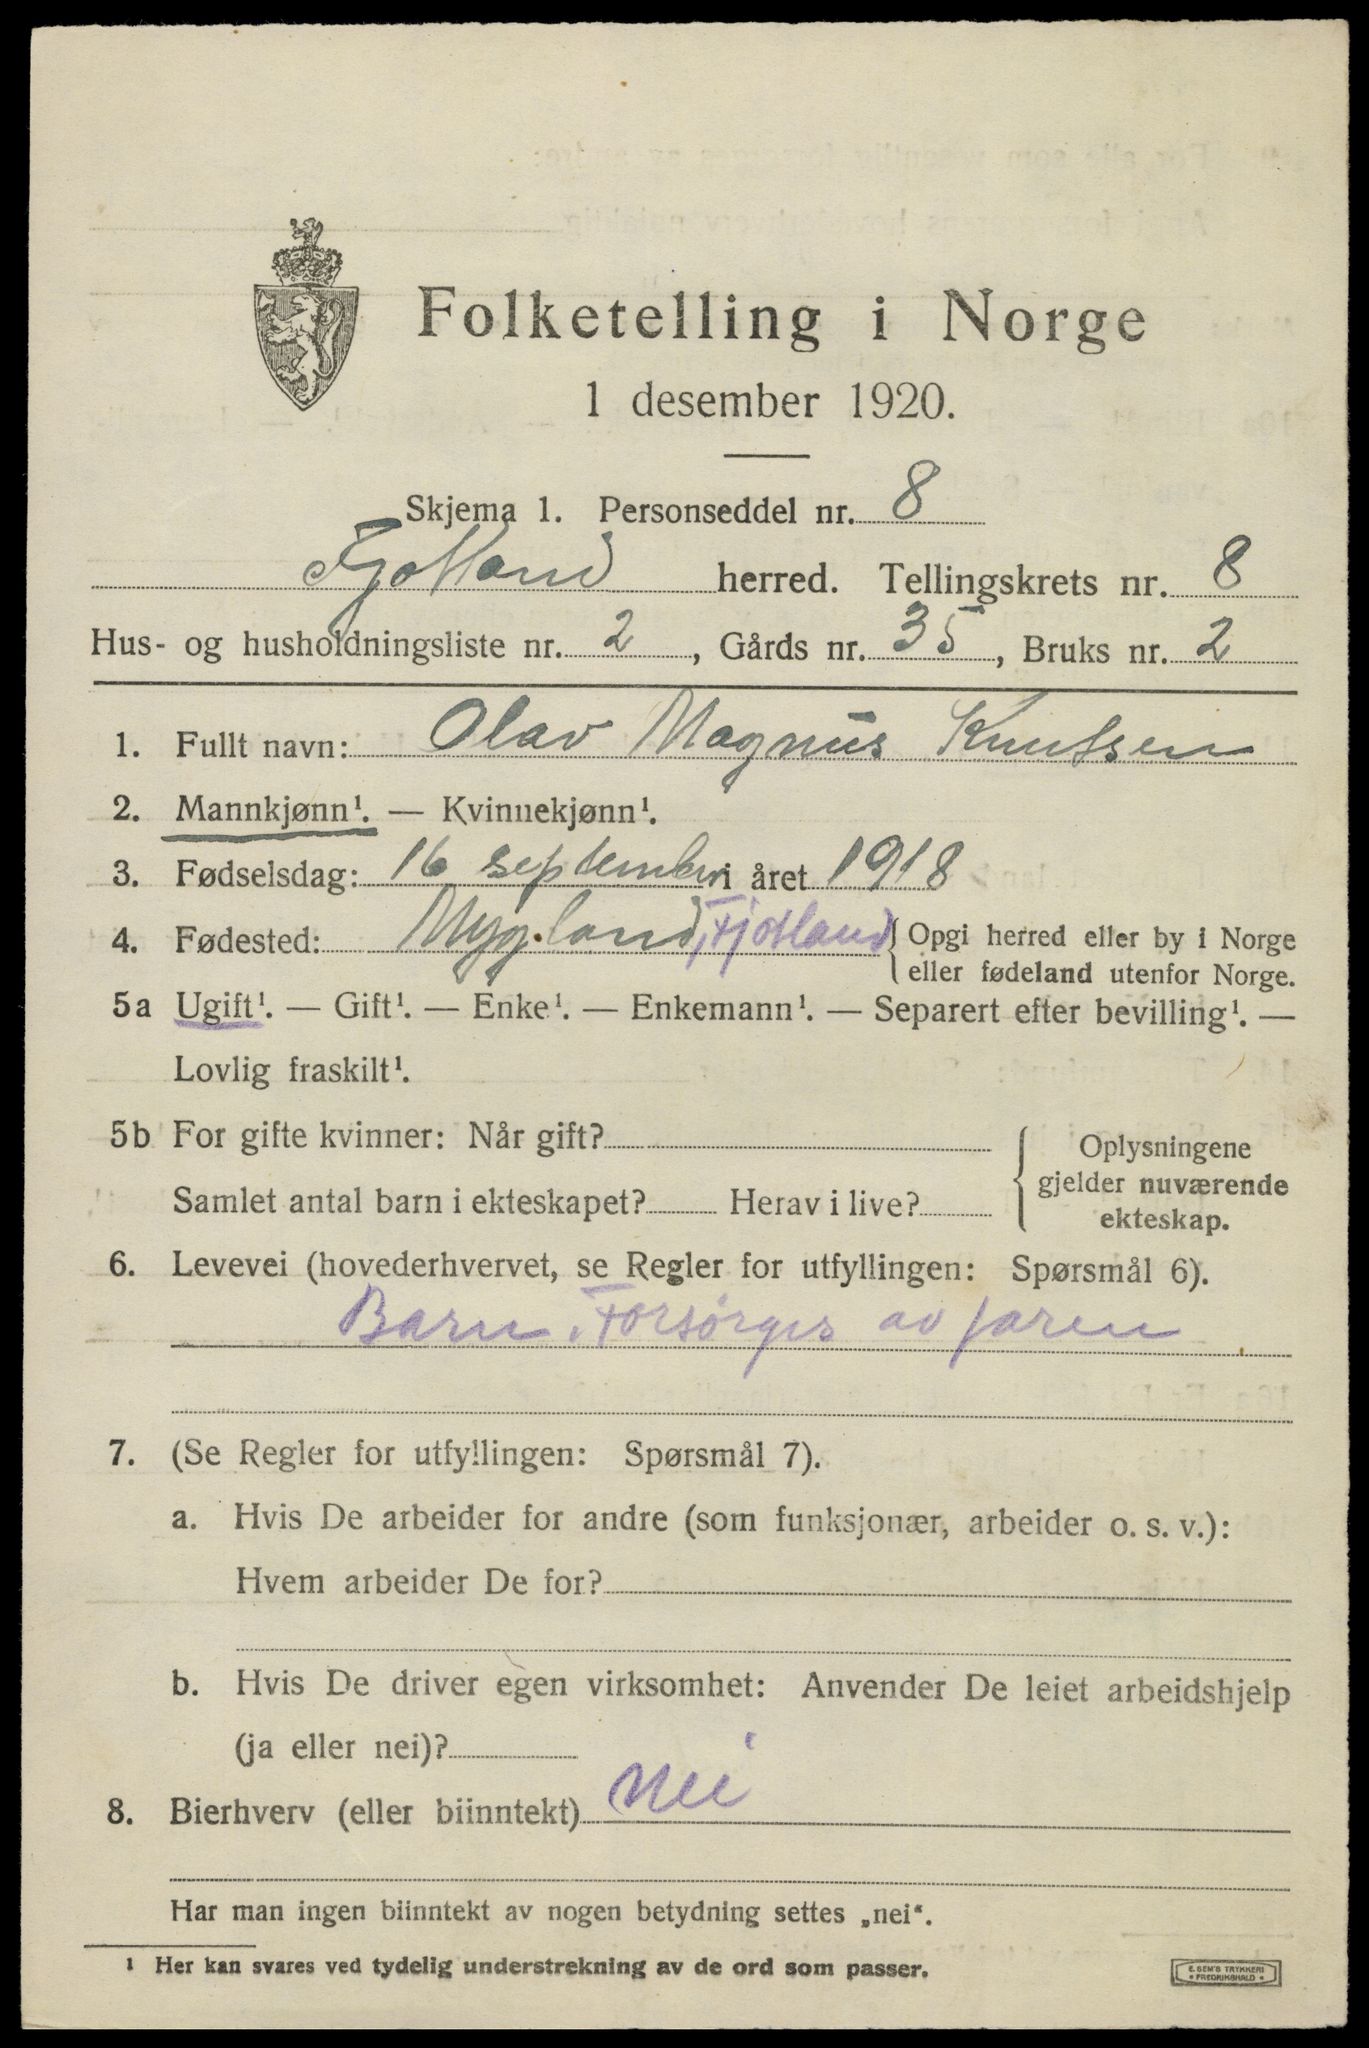 Folketelling i Norge
1 desember 1920.
Skjema 1. Personseddel nr. 8
Fjotland herred. Tellingskrets nr. 8
Hus- og husholdningsliste nr. 2, Gårds nr. 35, Bruks nr. 2
1. Fullt navn: Olav Magnus Knutsen
2. Mannkjønn¹. — Kvinnekjønn¹.
3. Fødselsdag: 16 september i året 1918
4. Fødested: Mygland, Fjotland { Opgi herred eller by i Norge
eller fødeland utenfor Norge.
5a Ugift¹. — Gift¹. — Enke¹. — Enkemann¹. — Separert efter bevilling¹. —
Lovlig fraskilt¹.
5b For gifte kvinner: Når gift?
Samlet antal barn i ekteskapet? Herav i live?
{ Oplysningene
gjelder nuværende
ekteskap.
6. Levevei (hovederhvervet, se Regler for utfyllingen: Spørsmål 6).
Barn. Forsørges av faren
7. (Se Regler for utfyllingen: Spørsmål 7).
a. Hvis De arbeider for andre (som funksjonær, arbeider o. s. v.):
Hvem arbeider De for?
b. Hvis De driver egen virksomhet: Anvender De leiet arbeidshjelp
(ja eller nei)?
8. Bierhverv (eller biinntekt) Nei
Har man ingen biinntekt av nogen betydning settes „nei“.
¹ Her kan svares ved tydelig understrekning av de ord som passer.
E. SEM'S TRYKKERI
• FREDRIKSHALD •